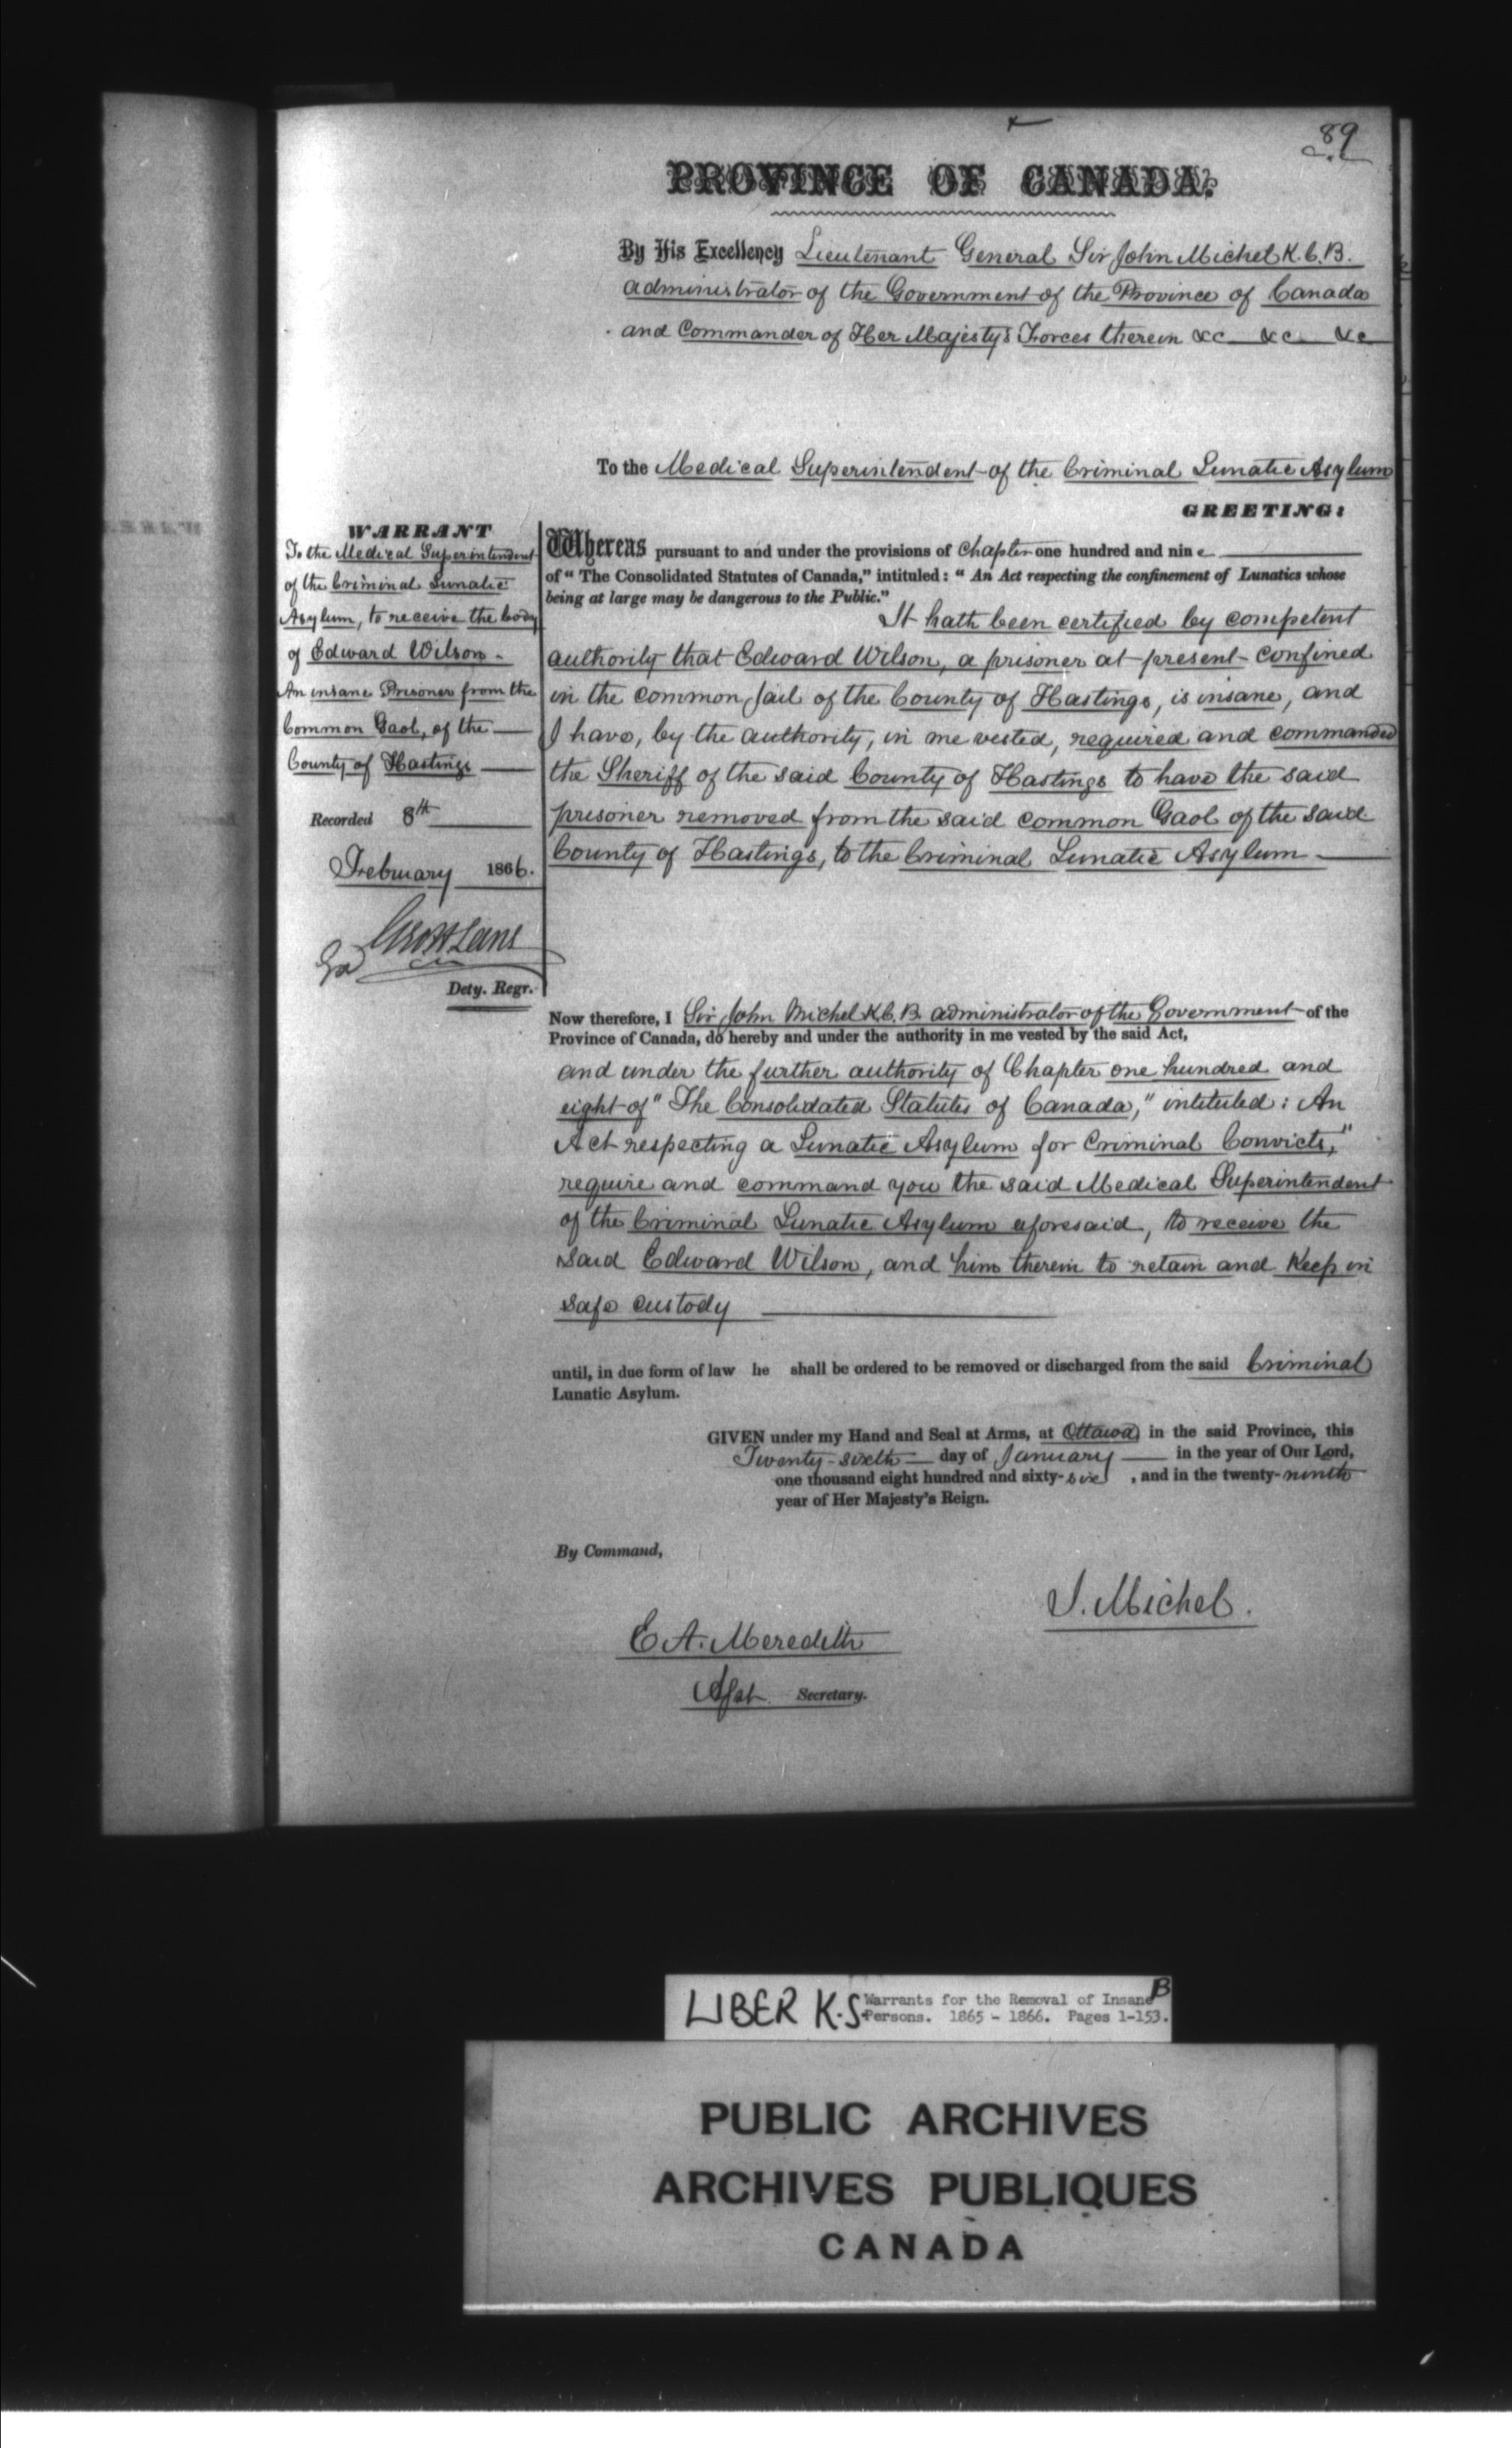 89
PROVINCE OF CANADA.
By His Excellency Lieutenant General Sir John Michel K.C.B.
administrator of the Government of the Province of Canada
and Commander of Her Majesty's Forces therein &c &c &c
To the Medical Superintendent of the Criminal Lunatic Asylum
GREETING:
WARRANT
To the Medical Superintendent
of the Criminal Lunatic
Asylum, to receive the body
of Edward Wilson -
An insane Prisoner from the
Common Gaol, of the
County of Hastings
Recorded 8th
February 1866.
Dety. Regr.
Whereas pursuant to and under the provisions of Chapter one hundred and nine
of "The Consolidated Statutes of Canada," intituled: "An Act respecting the confinement of Lunatics whose
being at large may be dangerous to the Public."
It hath been certified by competent
authority that Edward Wilson, a prisoner at present confined
in the common Jail of the County of Hastings, is insane, and
I have, by the authority, in me vested, required and commanded
the Sheriff of the said County of Hastings to have the said
prisoner removed from the said common Gaol of the said
County of Hastings, to the Criminal Lunatic Asylum
Now therefore, I Sir John Michel K.C.B. administrator of the Government of the
Province of Canada, do hereby and under the authority in me vested by the said Act,
and under the further authority of Chapter one hundred and
eight of "The Consolidated Statutes of Canada," intituled: An
Act respecting a Lunatic Asylum for Criminal Convicts,"
require and command you the said Medical Superintendent
of the Criminal Lunatic Asylum aforesaid, to receive the
said Edward Wilson, and him therein to retain and keep in
safe custody
until, in due form of law he shall be ordered to be removed or discharged from the said Criminal
Lunatic Asylum.
GIVEN under my Hand and Seal at Arms, at Ottawa in the said Province, this
Twenty-sixth day of January in the year of Our Lord,
one thousand eight hundred and sixty-six, and in the twenty-ninth
year of Her Majesty's Reign.
By Command,
J. Michel.
E A. Meredith
Asst. Secretary.
LIBER K.S. Warrants for the Removal of Insane B
Persons. 1865 - 1866. Pages 1-153.
PUBLIC ARCHIVES
ARCHIVES PUBLIQUES
CANADA